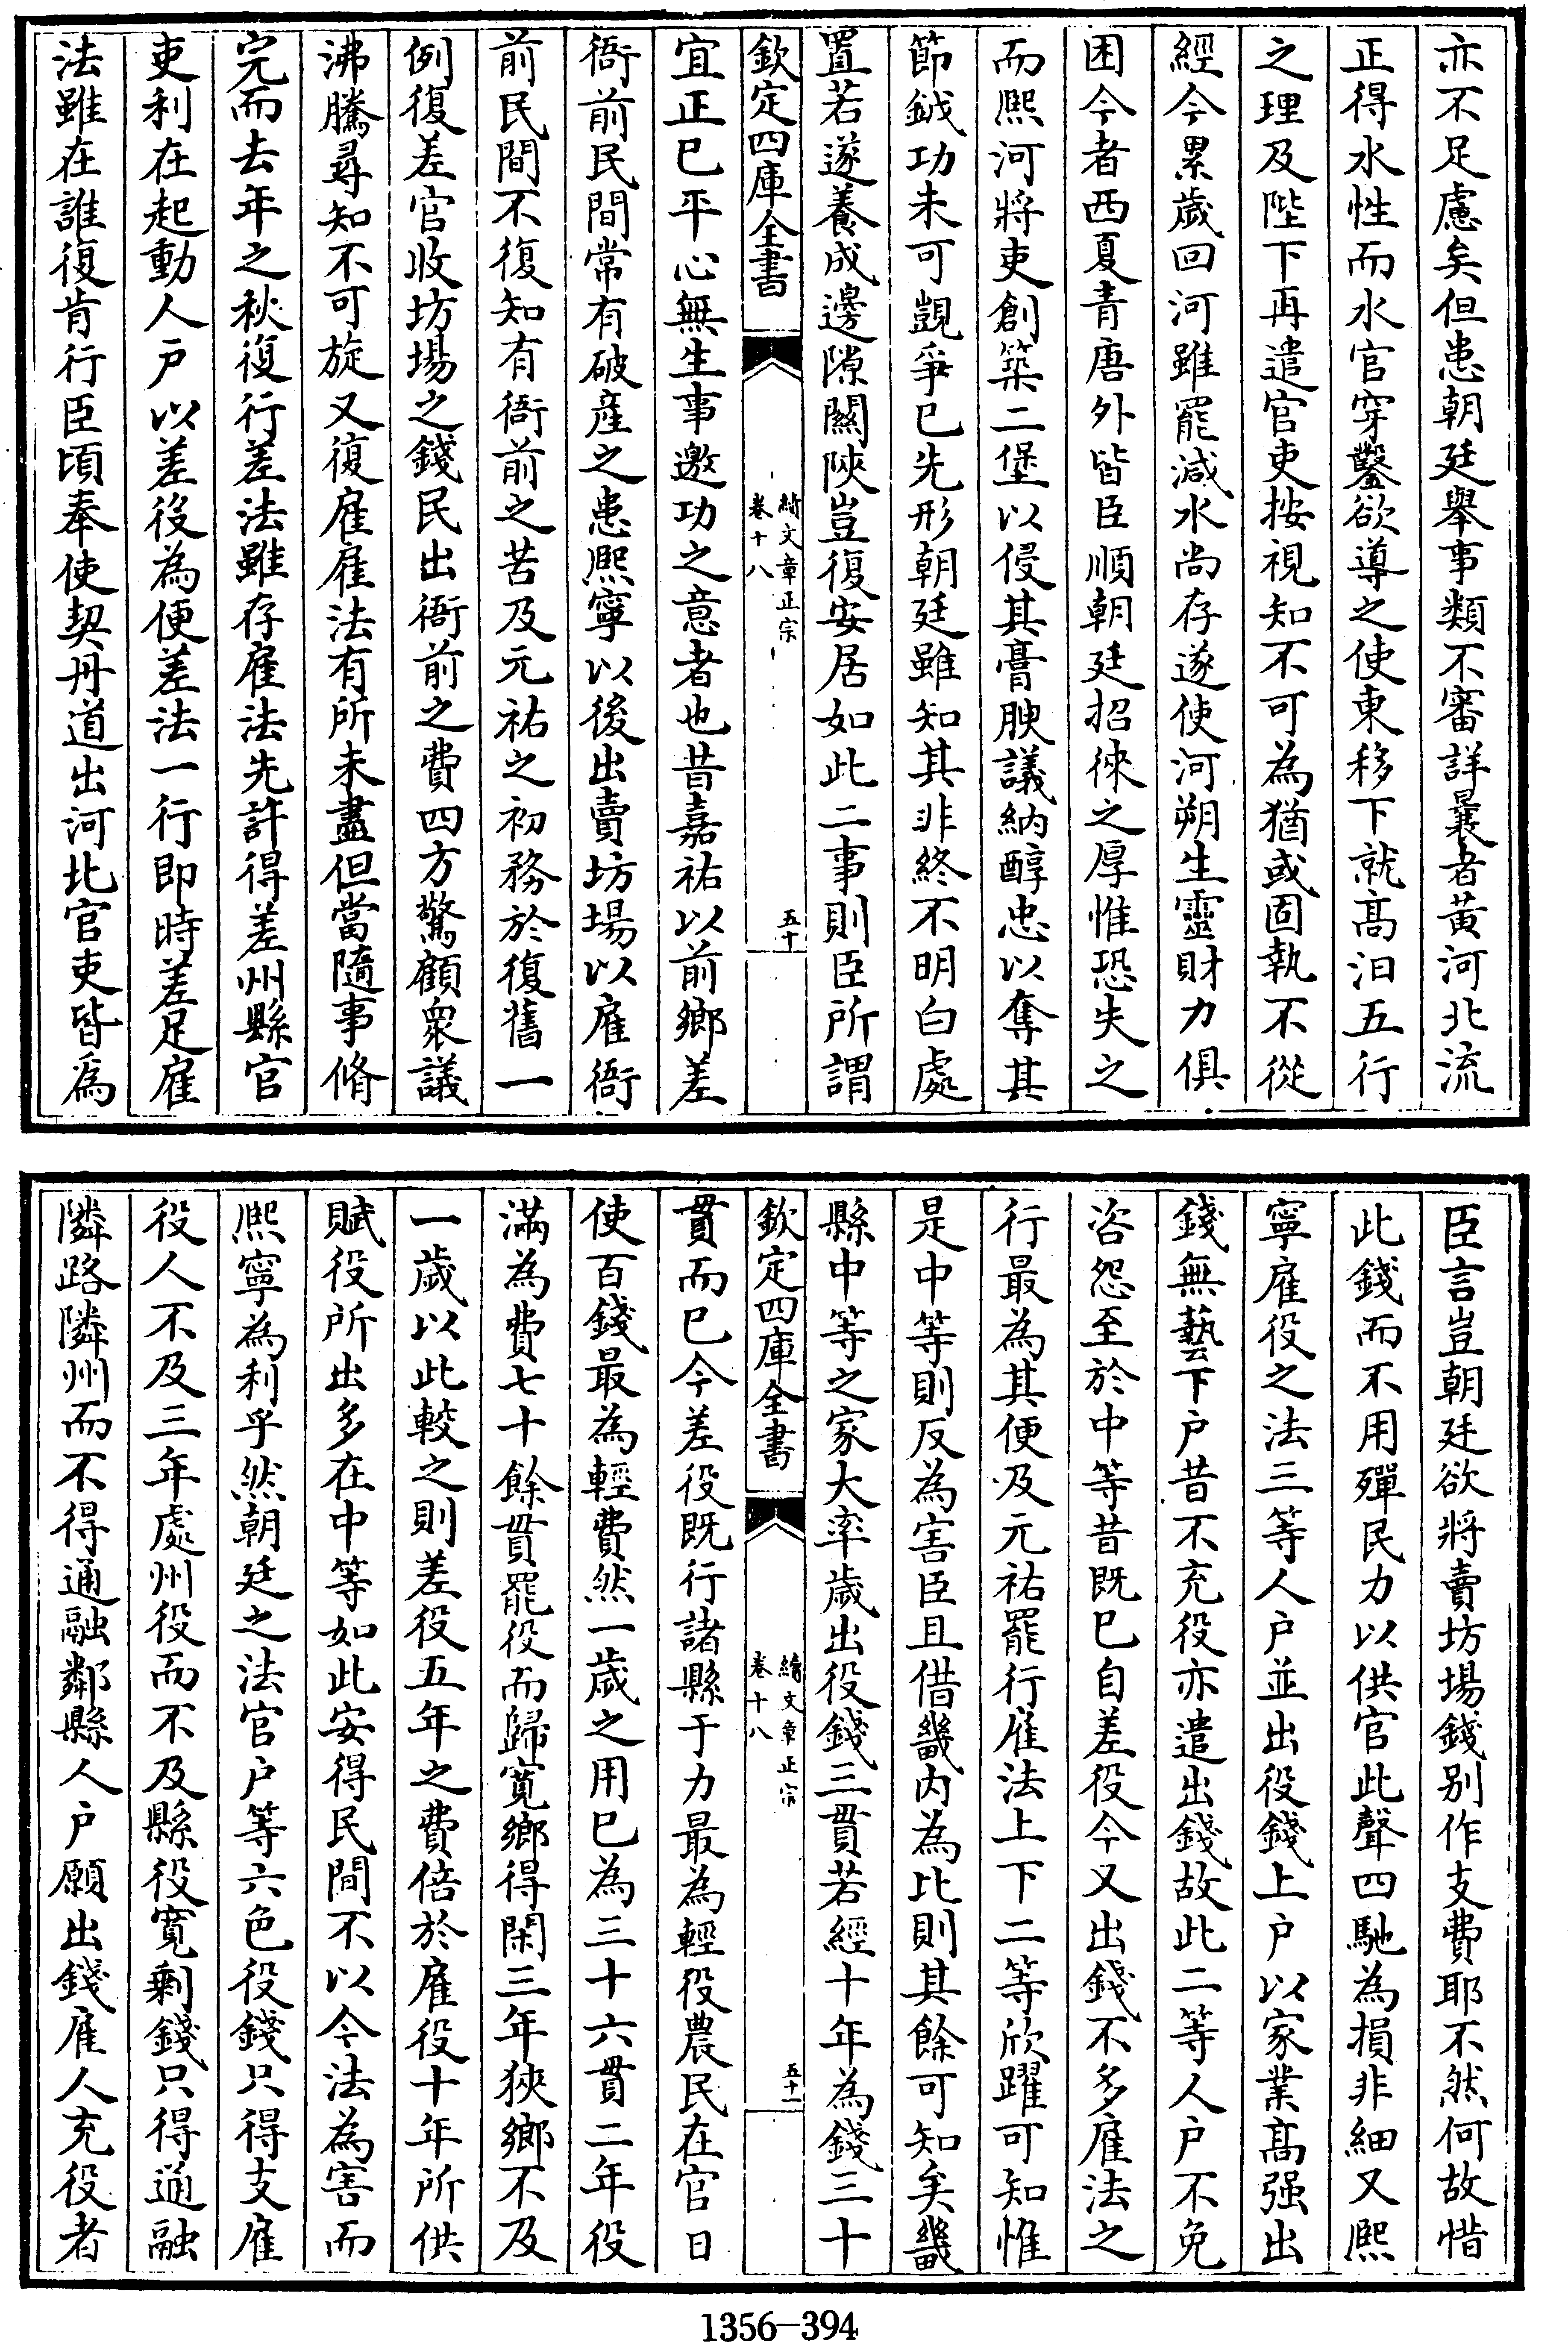 亦不足慮矣但患朝廷舉事類不審詳曩者黃河北流
正得水性而水官穿鑿欲導之使東移下就髙汩五行
之理及陛下再遣官吏按視知不可為猶或固執不從
經今累歲回河雖罷減水尚存遂使河朔生靈財力俱
困今者西夏青唐外皆臣順朝廷招徠之厚惟恐失之
而熙河將吏創築二堡以侵其膏腴議納醇忠以奪其
節鉞功未可覬爭已先形朝廷雖知其非終不明白處
置若遂養成邊隙關陝豈復安居如此二事則臣所謂
欽定四庫全書
續文章正宗
卷十八
五十
宜正已平心無生事邀功之意者也昔嘉祐以前鄉差
衙前民間常有破產之患熙寧以後出賣坊場以雇衙
前民間不復知有衙前之苦及元祐之初務於復舊一
例復差官收坊場之錢民出衙前之費四方驚顧衆議
沸騰尋知不可旋又復雇雇法有所未盡但當隨事脩
完而去年之秋復行差法雖存雇法先許得差州縣官
吏利在起動人户以差役為便差法一行即時差足雇
法雖在誰復肯行臣頃奉使契丹道出河北官吏皆為
臣言豈朝廷欲將賣坊場錢别作支費耶不然何故惜
此錢而不用殫民力以供官此聲四馳為損非細又熙
寧雇役之法三等人户並出役錢上户以家業髙强出
錢無藝下户昔不充役亦遣出錢故此二等人户不免
咨怨至於中等昔既已自差役今又出錢不多雇法之
行最為其便及元祐罷行雇法上下二等欣躍可知惟
是中等則反為害臣且借畿内為比則其餘可知矣畿
縣中等之家大率歲出役錢三貫若經十年為錢三十
欽定四庫全書
續文章正宗
卷十八
五十一
貫而已今差役既行諸縣手力最為輕役農民在官日
使百錢最為輕費然一歲之用已為三十六貫二年役
滿為費七十餘貫罷役而歸寛鄉得閑三年狹鄉不及
一歲以此較之則差役五年之費倍於雇役十年所供
賦役所出多在中等如此安得民間不以今法為害而
熙寧為利乎然朝廷之法官户等六色役錢只得支雇
役人不及三年處州役而不及縣役寛剰錢只得通融
隣路隣州而不得通融鄰縣人户願出錢雇人充役者
1356-394